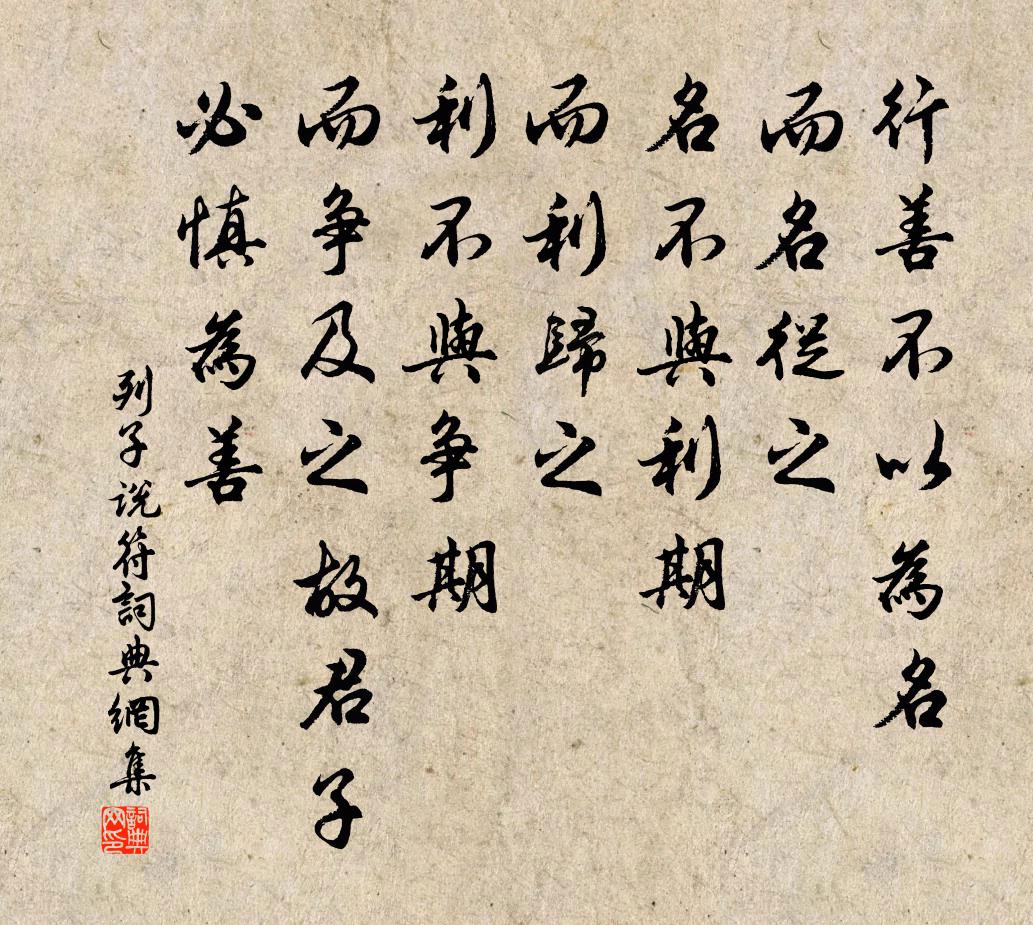 行善不以為名
而名從之
名不與利期
而利歸之
利不與爭期
而爭及之故君子
必慎為善
列子說符詞典網集
詞典網印